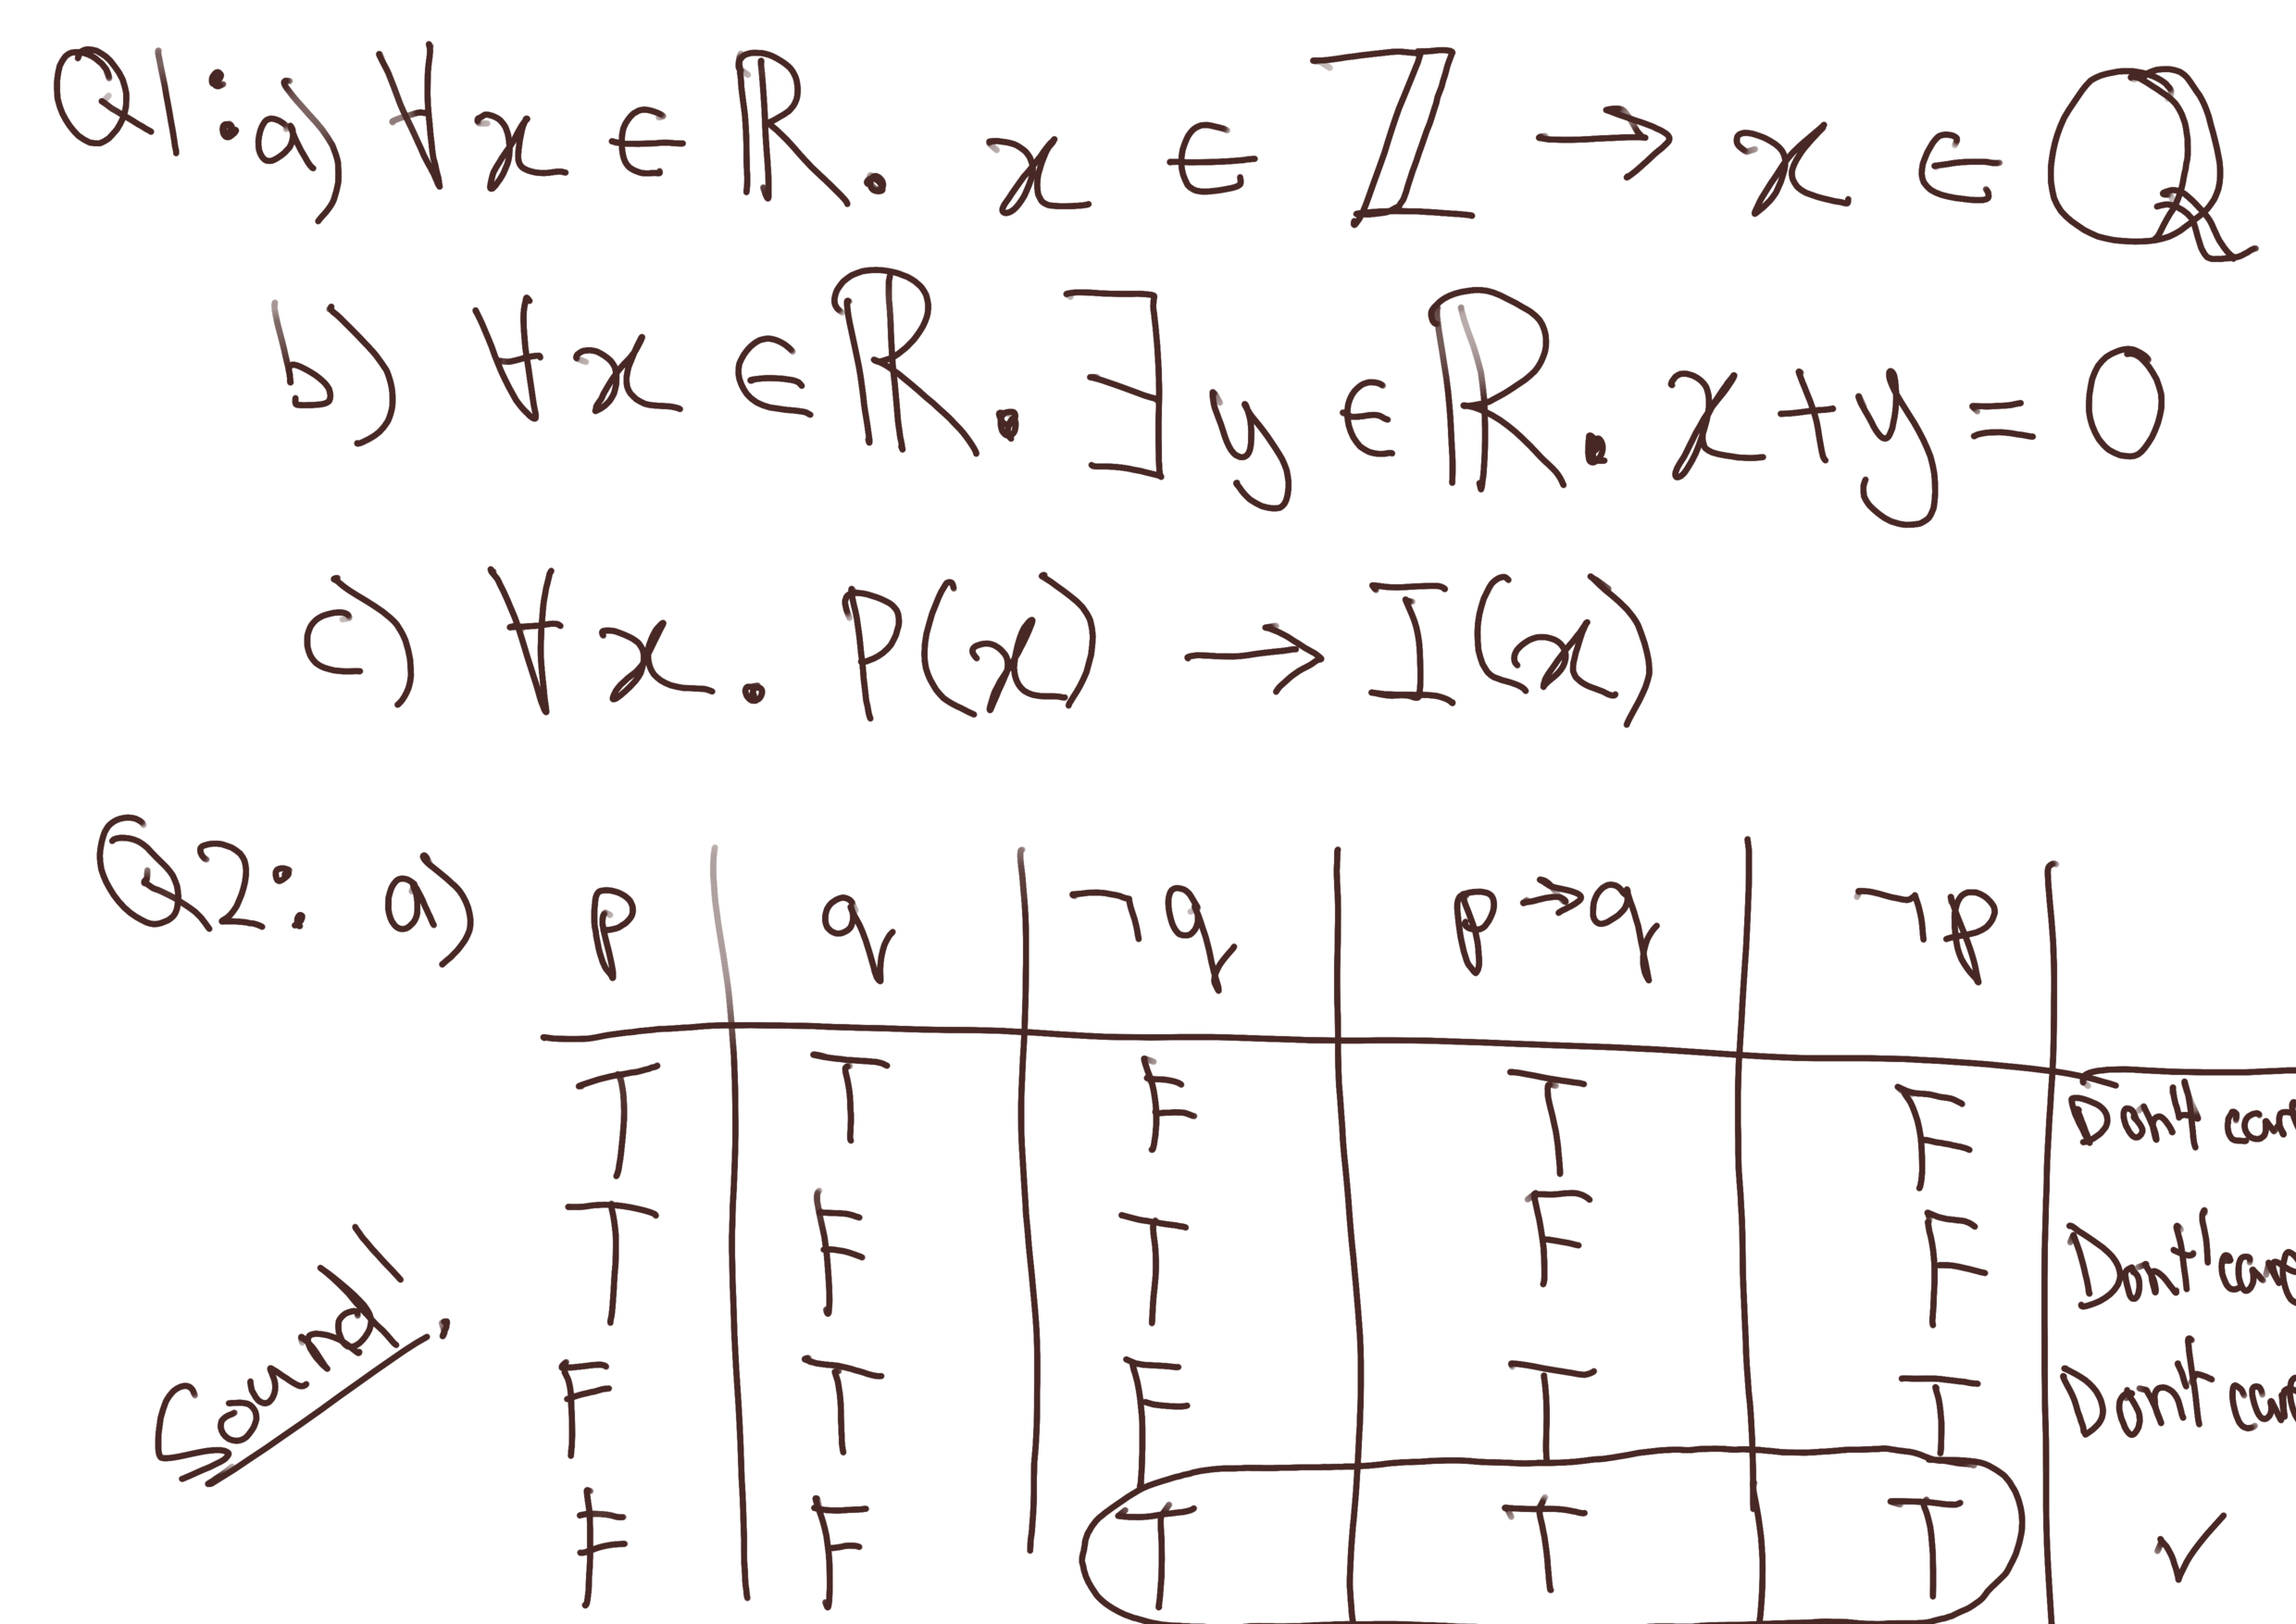 Q1: a) ∀x ∈ ℝ. x ∈ ℤ → x ∈ ℚ
b) ∀x ∈ ℝ. ∃y ∈ ℝ. x+y=0
c) ∀x. P(x) → I(x)
Q2: a) p q ¬q p→q ¬p
T T F T F Dont
T F T F F Dont care
F T F T T Dont
F F T T T ✓
Sound!